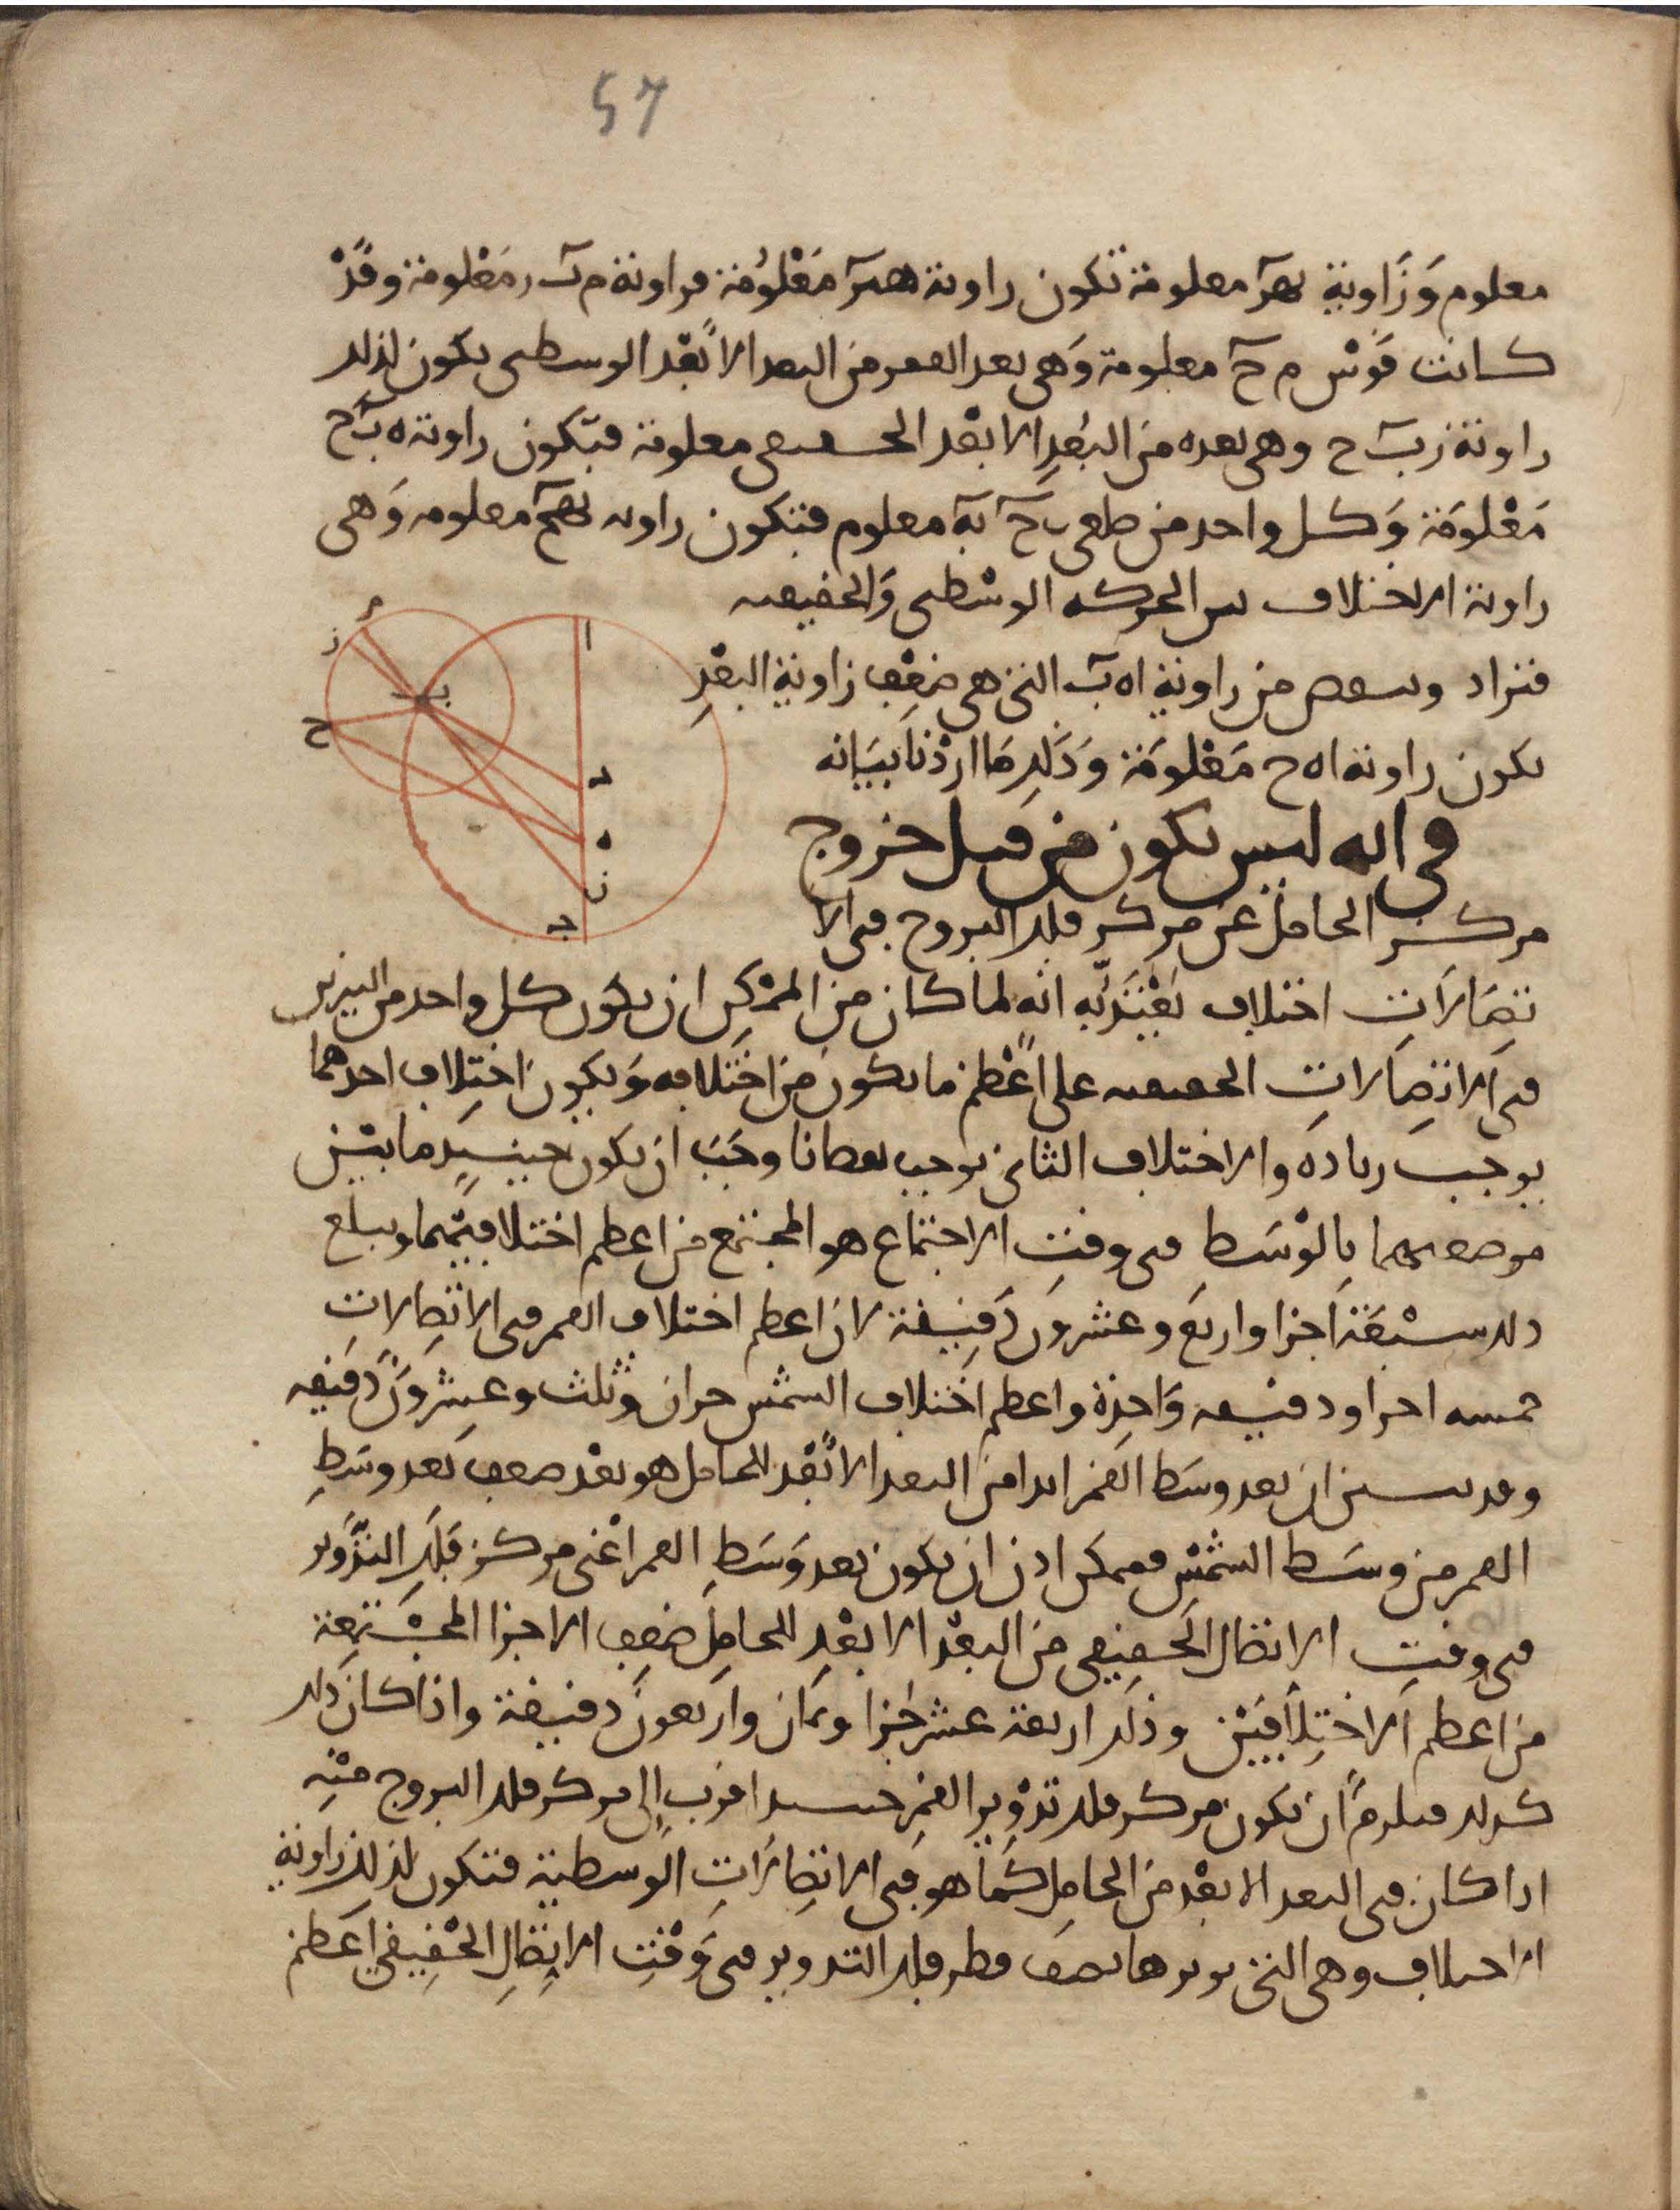 57
معلوم وَزَاوية بهز معلومة تكون زاوية هبز مَعْلُومَة فزاوية م ب ز مَعْلومة وقَدْ
كانت قوْس م ح معلومة وَهى بعد القمر من البعد الأبْعَد الوسطى يكون لذلك
زاوية ز ب ح وهى بعده من البُعْدِ الابْعَد الحقيقى معلومة فتكون زاوية ه ب ح
مَعْلومَة وَكل واحد من ضلعى ب ح ب ه معلوم فتكون زاوية بهح معلومه وَهى
زاوية الاختلاف بين الحركه الوسْطى وَالحقيقيه
فتزاد وتنقص من زاوية ا ه ب التى هى ضِعْف زاوية البعْدِ
تكون زاوية ا ه ح مَعْلومَة وَذَلك مَا ارَدْنا بَيَانه
فى انه ليس يكون من قبل خروج
مركز الحامل عن مركز فلك البروج فى الا
تصَالَاتِ اختلاف يُعْتَدّ به انه لما كان من المُمْكِن ان يكون كل واحد من النيرين
فى الاتصَالات الحقيقيه على أعْظم ما يكون مَن اخْتلافه وَيكون اختِلاف احدهما
يوجب زيادَه والاختلاف الثانى يوجب نقصانا وجَبَ ان يكون حينيذٍ ما بيْن
موضعيهما بِالوَسَط فى وقتِ الاجتماع هو المجتمع من اعظم اختلافيهما ويبلغ
ذلك سبْعَة اجزا واربَع وعشرون دَقيقة لان اعظم اختلاف القمر فى الاتصِالاتِ
خمسه اجزا ودقيقه وَاحِدة واعظم اخْتلاف الشمْس جزان وثَلث وعِشروَن دَقيقه
وقد تبين ان بعد وسَط القمر ابدا من البعد الأبْعَد للحامل هو بعْد ضعف بَعد وسَطِ
القمر من وسَط الشمْسِ فيمكن اذن ان يكون بعد وَسَطِ القمر اعْنى مركز فَلَكِ التدْوير
فى وقتِ الاتصال الحَقيقى من البعْد الابعْدِ للحامِل ضعف الاجزا المجْتَمِعة
من اعظم الاخْتِلافَيْن وذلك اربعة عشر جُزا وثمان واربعونَ دقيقة واذا كان ذلك
كذلك فيلزم ان يكون مركز فلك تَدْوير القمرِ حينيذ اقرب إلى مركز فلك البروج منْهِ
اذا كان فى البعد الابعْد من الحَامِل كَما هو فى الاتصِالَاتِ الوَسطية فتكون لذلك زاوية
الاختلاف وهى التى يوترها نصف قطر فلك التدوير فى وَقْتِ الاتِصَالِ الحَقِيقى اعَظم
ا
ب
ج
د
ه
ن
ز
م
ح